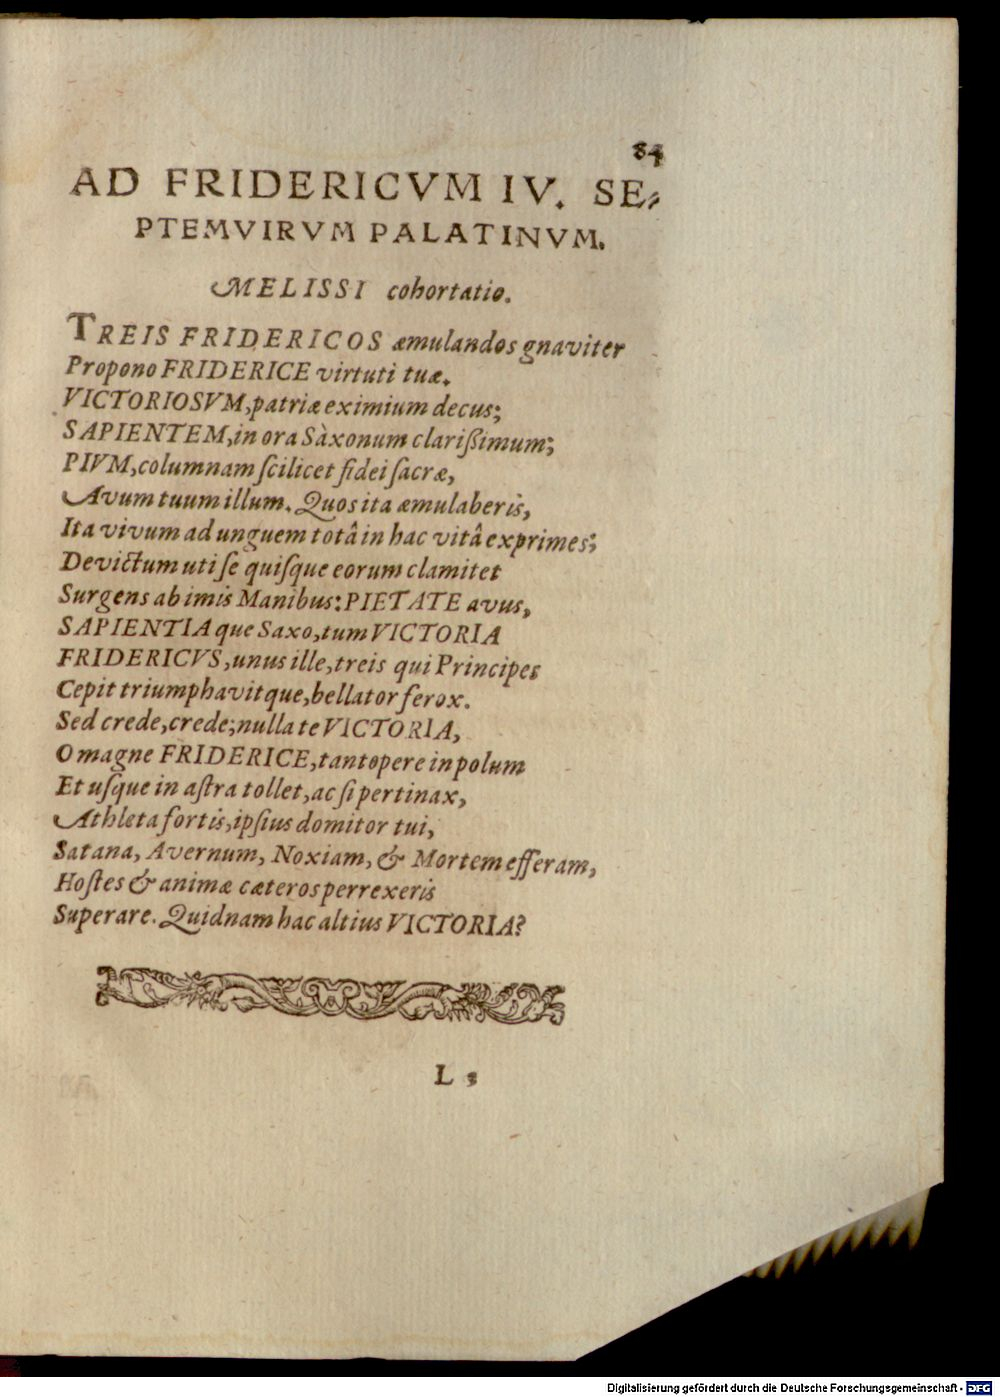 84
AD FRIDERICVM IV. SE-
PTEMVIRVM PALATINVM.
MELISSI cohortatio.
TREIS FRIDERICOS æmulandos gnaviter
Propono FRIDERICE virtuti tuæ.
VICTORIOSVM, patriæ eximium decus;
SAPIENTEM, in ora Sàxonum clarißimum;
PIVM, columnam ſcilicet fidei ſacræ,
Avum tuum illum. Quos ita æmulaberis,
Ita vivum ad unguem totâ in hac vitâ exprimes;
Devictum uti ſe quiſque eorum clamitet
Surgens ab imis Manibus: PIETATE avus,
SAPIENTIA que Saxo, tum VICTORIA
FRIDERICVS, unus ille, treis qui Principes
Cepit triumphavitque, bellator ferox.
Sed crede, crede; nulla te VICTORIA,
O magne FRIDERICE, tantopere in polum
Et uſque in aſtra tollet, ac ſi pertinax,
Athleta fortis, ipſius domitor tui,
Satana, Avernum, Noxiam, & Mortem efferam,
Hoſtes & animæ cæteros perrexeris
Superare. Quidnam hac altius VICTORIA?
L 3
Digitalisierung gefördert durch die Deutsche Forschungsgemeinschaft - DFG